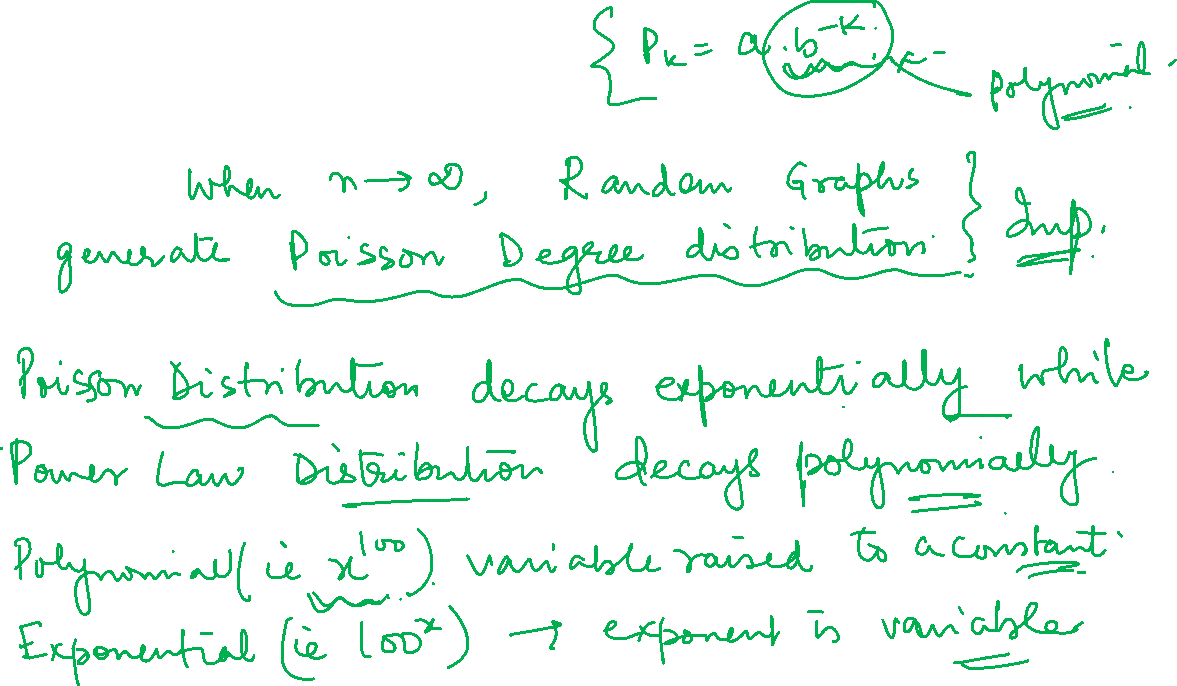 { Pₖ = a.b⁻ᴷ. ← polynomial.
When n → ∞, Random Graphs
generate Poisson Degree distribution } Imp.
Poisson Distribution decays exponentially while
Power Law Distribution decays polynomially
Polynomial (ie x¹⁰⁰) variable raised to a constant
Exponential (ie 100ˣ) → exponent is variable